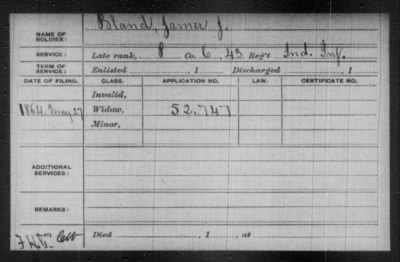 NAME OF SOLDIER: Bland, James J.
SERVICE: Late rank, P Co. C, 43 Reg't Ind. Inf.
TERM OF SERVICE: Enlisted , 1 Discharged , 1
DATE OF FILING. CLASS. APPLICATION NO. LAW. CERTIFICATE NO.
Invalid,
1864. May 27 Widow, 52.747
Minor,
ADDITIONAL SERVICES:
REMARKS:
Died , 1 , at